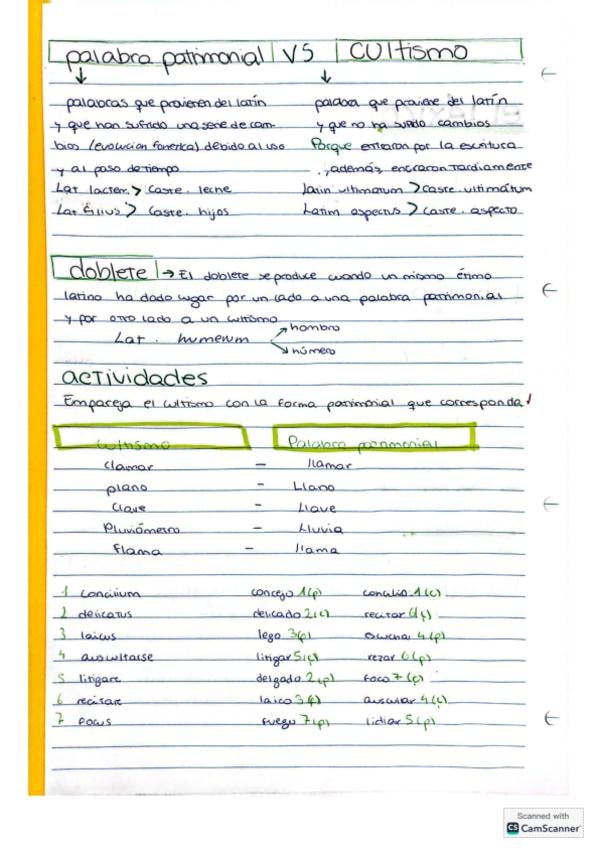 palabra patrimonial VS cultismo
palabras que provienen del latín
y que han sufrido una serie de cam-
bios (evolucion fonetica) debido al uso
y al paso de tiempo
Lat lactem > Caste. leche
Lat filius > Caste. hijos
palabra que proviene del latín
y que no ha sufrido cambios
Porque entraron por la escritura
., además, entraron tardiamente
latin ultimatum > caste. ultimátum
Latin aspectus > caste. aspecto
doblete → El doblete se produce cuando un mismo étimo
latino ha dado lugar por un lado a una palabra patrimonial
y por otro lado a un cultismo
Lat. humerum
hombro
número
actividades
Empareja el cultismo con la forma patrimonial que corresponda
cultismo Palabra patrimonial
clamar - llamar
plano - Llano
Clave - Llave
Pluviómetro - Lluvia
flama - llama
1 concilium concejo 1(p) concilio 1(c)
2 delicatus delicado 2(c) recitar 6(c)
3 laicus lego 3(p) escuchar 4(p)
4 auscultarse litigar 5(c) rezar 6(p)
5 litigare delgado 2(p) foco 7(c)
6 recitare laico 3(c) auscultar 4(c)
7 focus fuego 7(p) lidiar 5(p)
Scanned with
CS CamScanner